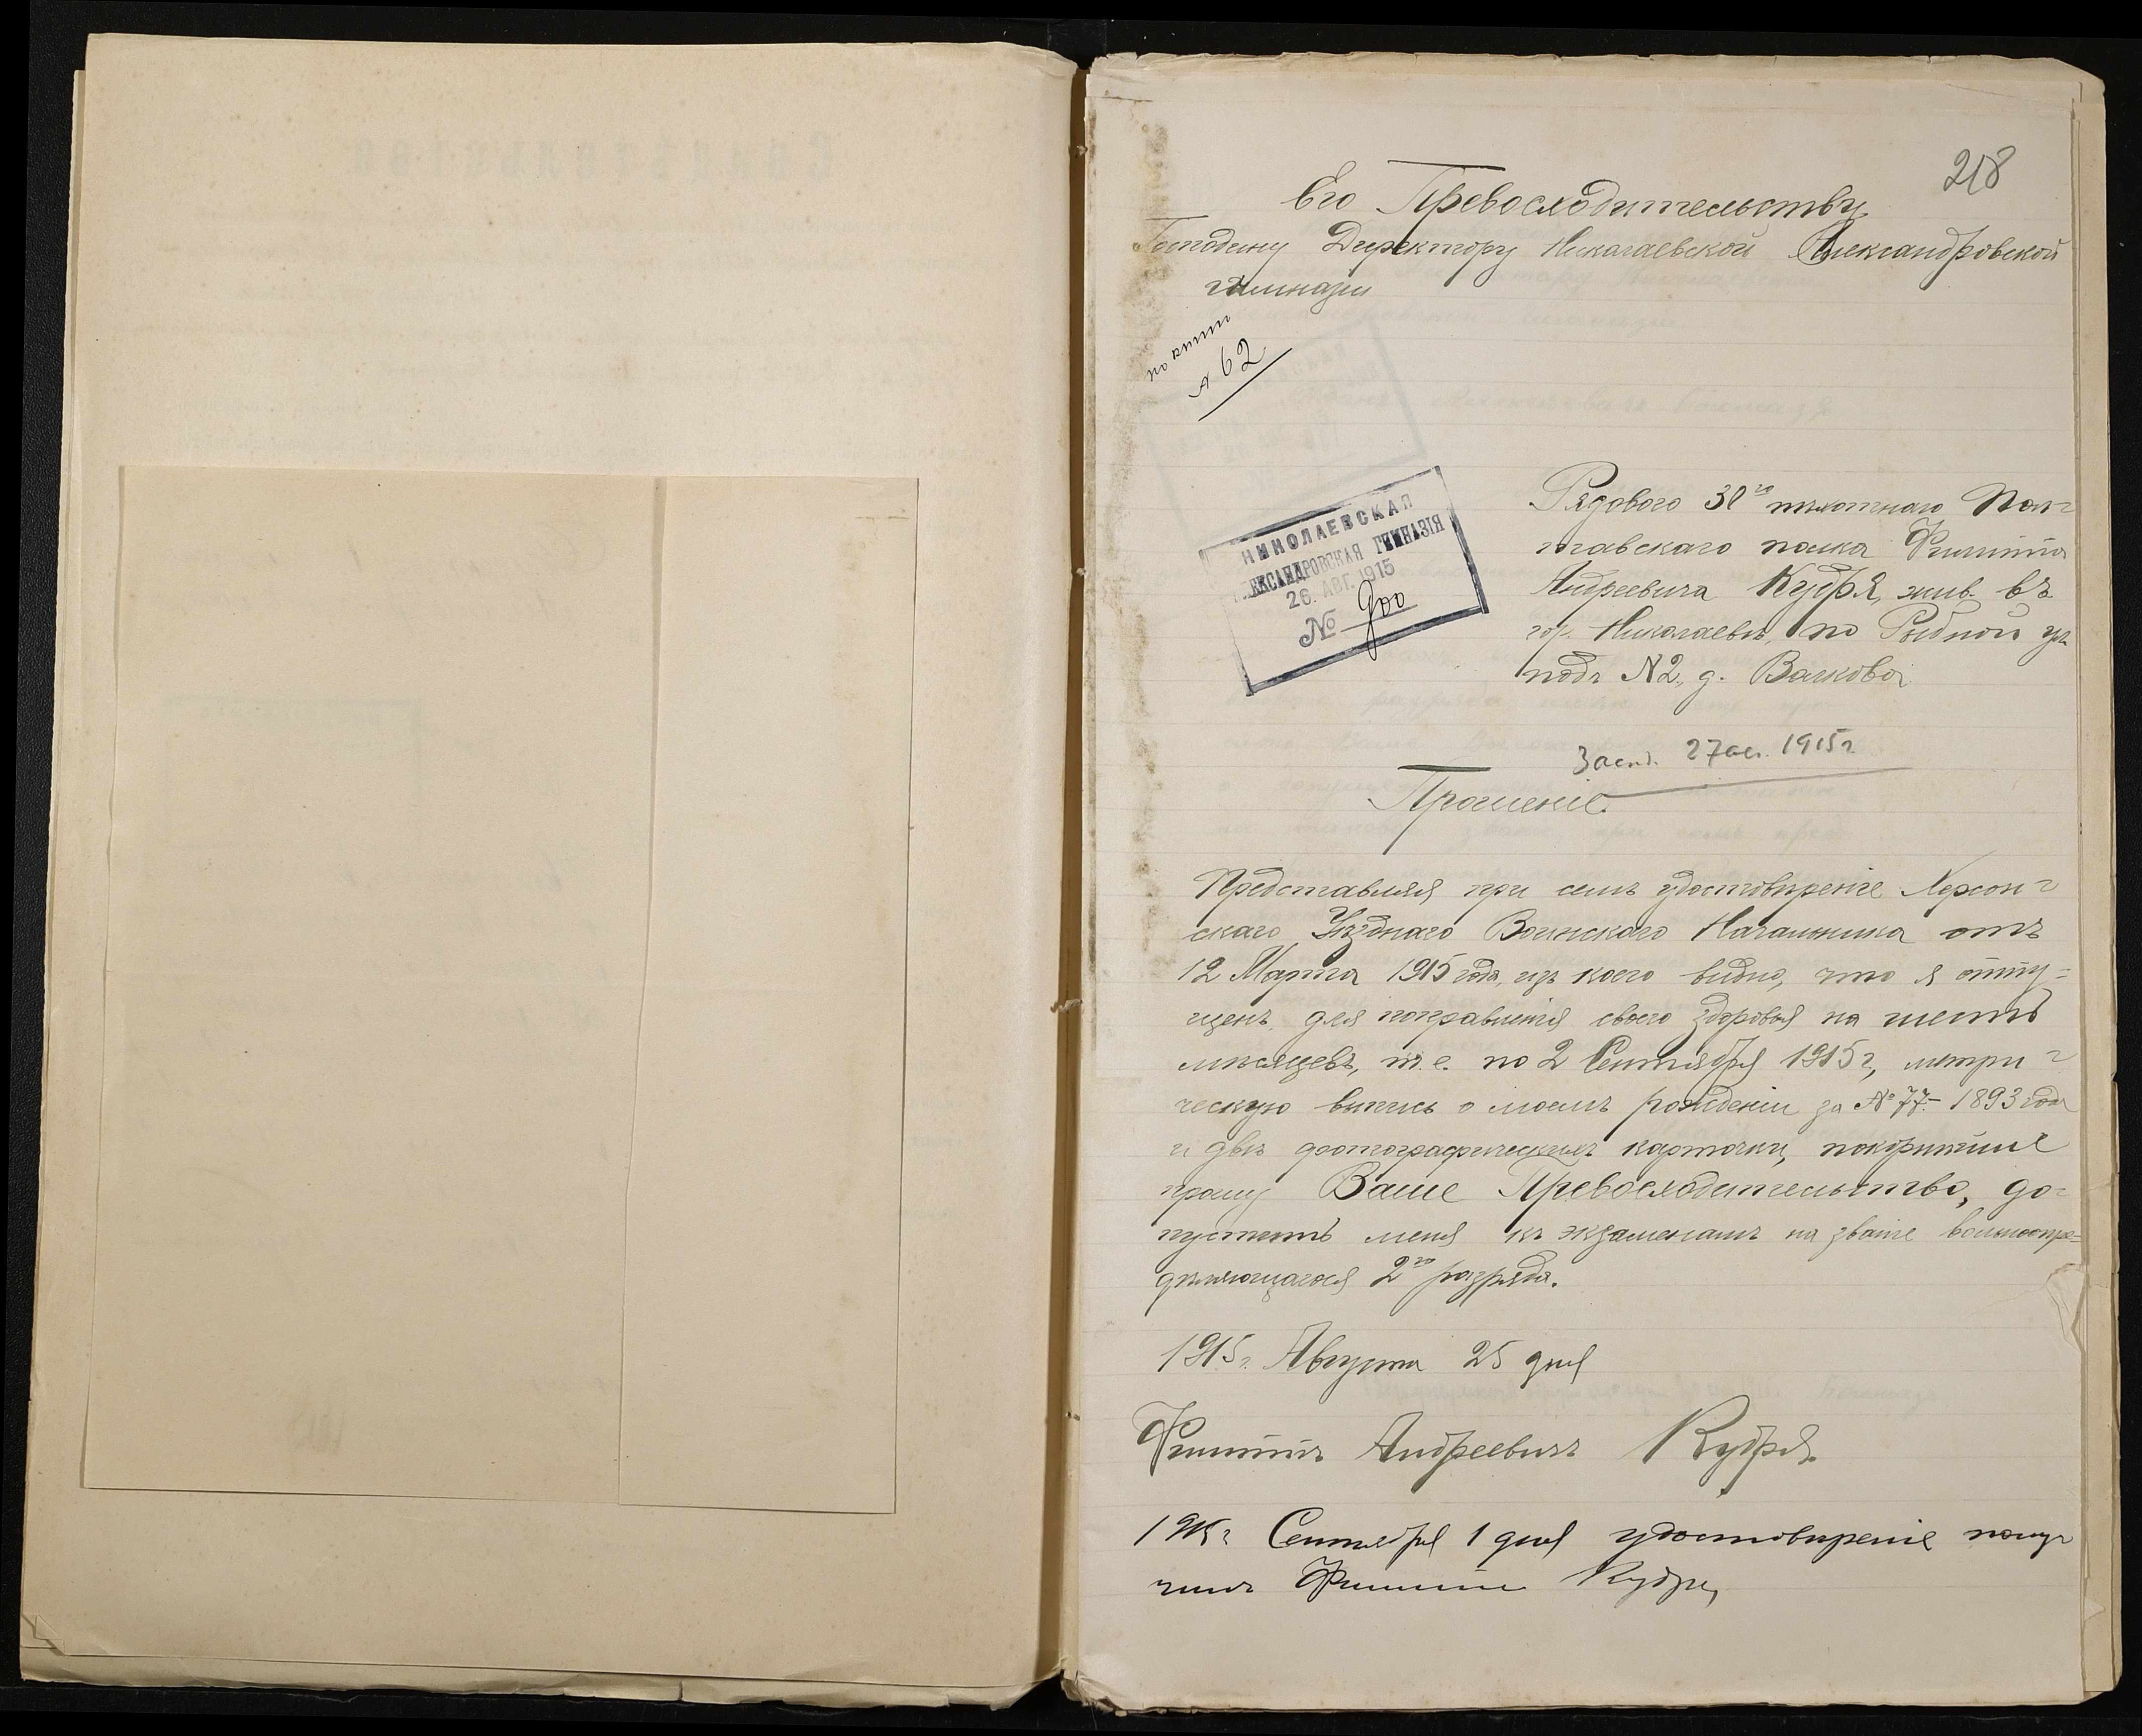 218
Его Превосходительству
Господину Директору Николаевской Александровской
гимназіи
№ 62
НИКОЛАЕВСКАЯ
АЛЕКСАНДРОВСКАЯ ГИМНАЗІЯ
26. АВГ. 1915
№ 900
Рядового 30го пѣхотнаго Пол=
тавскаго полка Филиппа
Андреевича Кудря, жив. въ
гор. Николаевѣ, по Рыбной ул.
подъ №2, д. Волковой
27 авг. 1915 г.
Прошеніе.
Представляя при семъ удостовѣреніе Херсон=
скаго Уѣзднаго Воинскаго Начальника отъ
12 Марта 1915 года, изъ коего видно, что я отпу=
щенъ для поправленія своего здоровья на шесть
мѣсяцевъ, т.е. по 2 Сентября 1915 г., метри=
ческую выпись о моемъ рожденіи за № 77 – 1893 года
и двѣ фотографическихъ карточки, покорнѣйше
прошу Ваше Превосходительство, до=
пустить меня къ экзаменамъ на званіе вольноопре=
дѣляющагося 2го разряда.
1915 г. Августа 25 дня
Филиппъ Андреевичъ Кудря.
1915 г. Сентября 1 дня удостовѣреніе полу=
чилъ Филиппъ Кудря